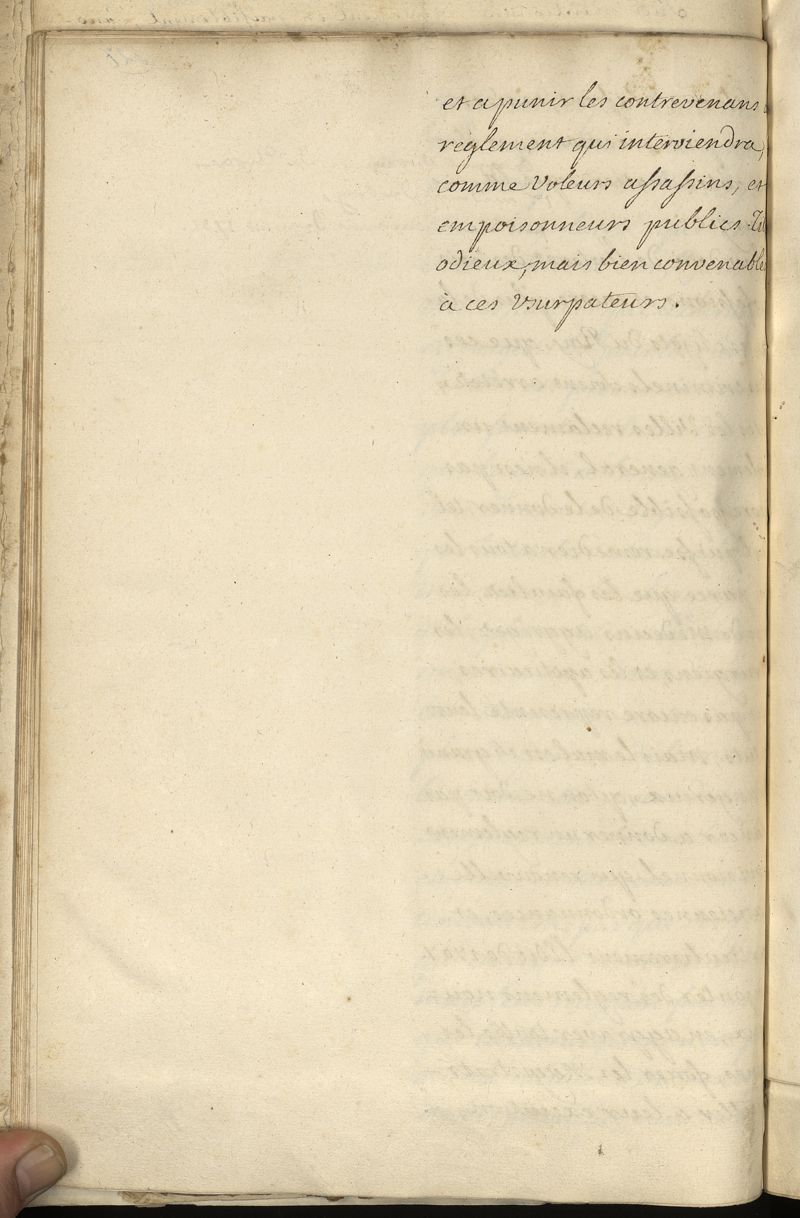 et a punir les contrevenans
règlement qui interviendra,
comme Voleurs assassins, et
empoisonneurs publics.
odieux, mais bien convenable
à ces Vsurpateurs.